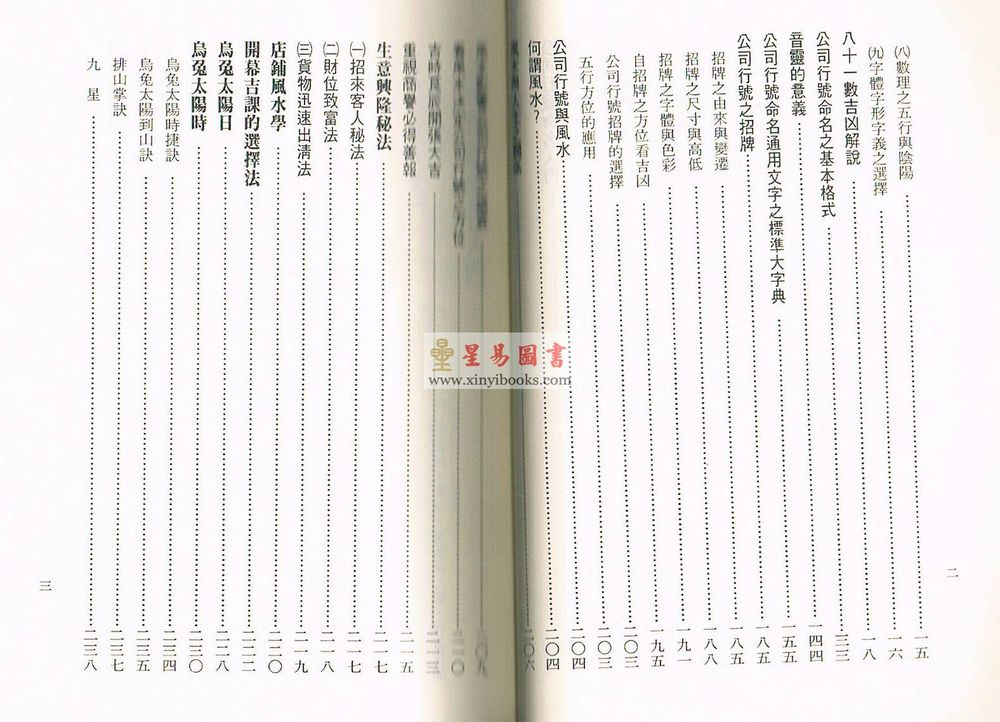 ㈧數理之五行與陰陽……一五
㈨字體字形字義之選擇……一六
八十一數吉凶解說……一八
公司行號命名之基本格式……三三
音靈的意義……一四四
公司行號命名通用文字之標準大字典……一五五
公司行號之招牌……一八五
招牌之由來與變遷……一八八
招牌之尺寸與高低……一九一
招牌之字體與色彩……一九五
自招牌之方位看吉凶……二〇三
公司行號招牌的選擇……二〇三
五行方位的應用……二〇四
公司行號與風水……二〇四
何謂風水?……二〇六
二
開張大吉……二一三
重視商譽必得善報……二一五
生意興隆秘法……二一七
㈠招來客人秘法……二一七
㈡財位致富法……二一八
㈢貨物迅速出清法……二一九
店鋪風水學……二二〇
開幕吉課的選擇法……二二二
烏兔太陽日……二二八
烏兔太陽時……二三〇
烏兔太陽時捷訣……二三四
烏兔太陽到山訣……二三五
排山掌訣……二三七
九星……二三八
三
星易圖書
www.xinyibooks.com